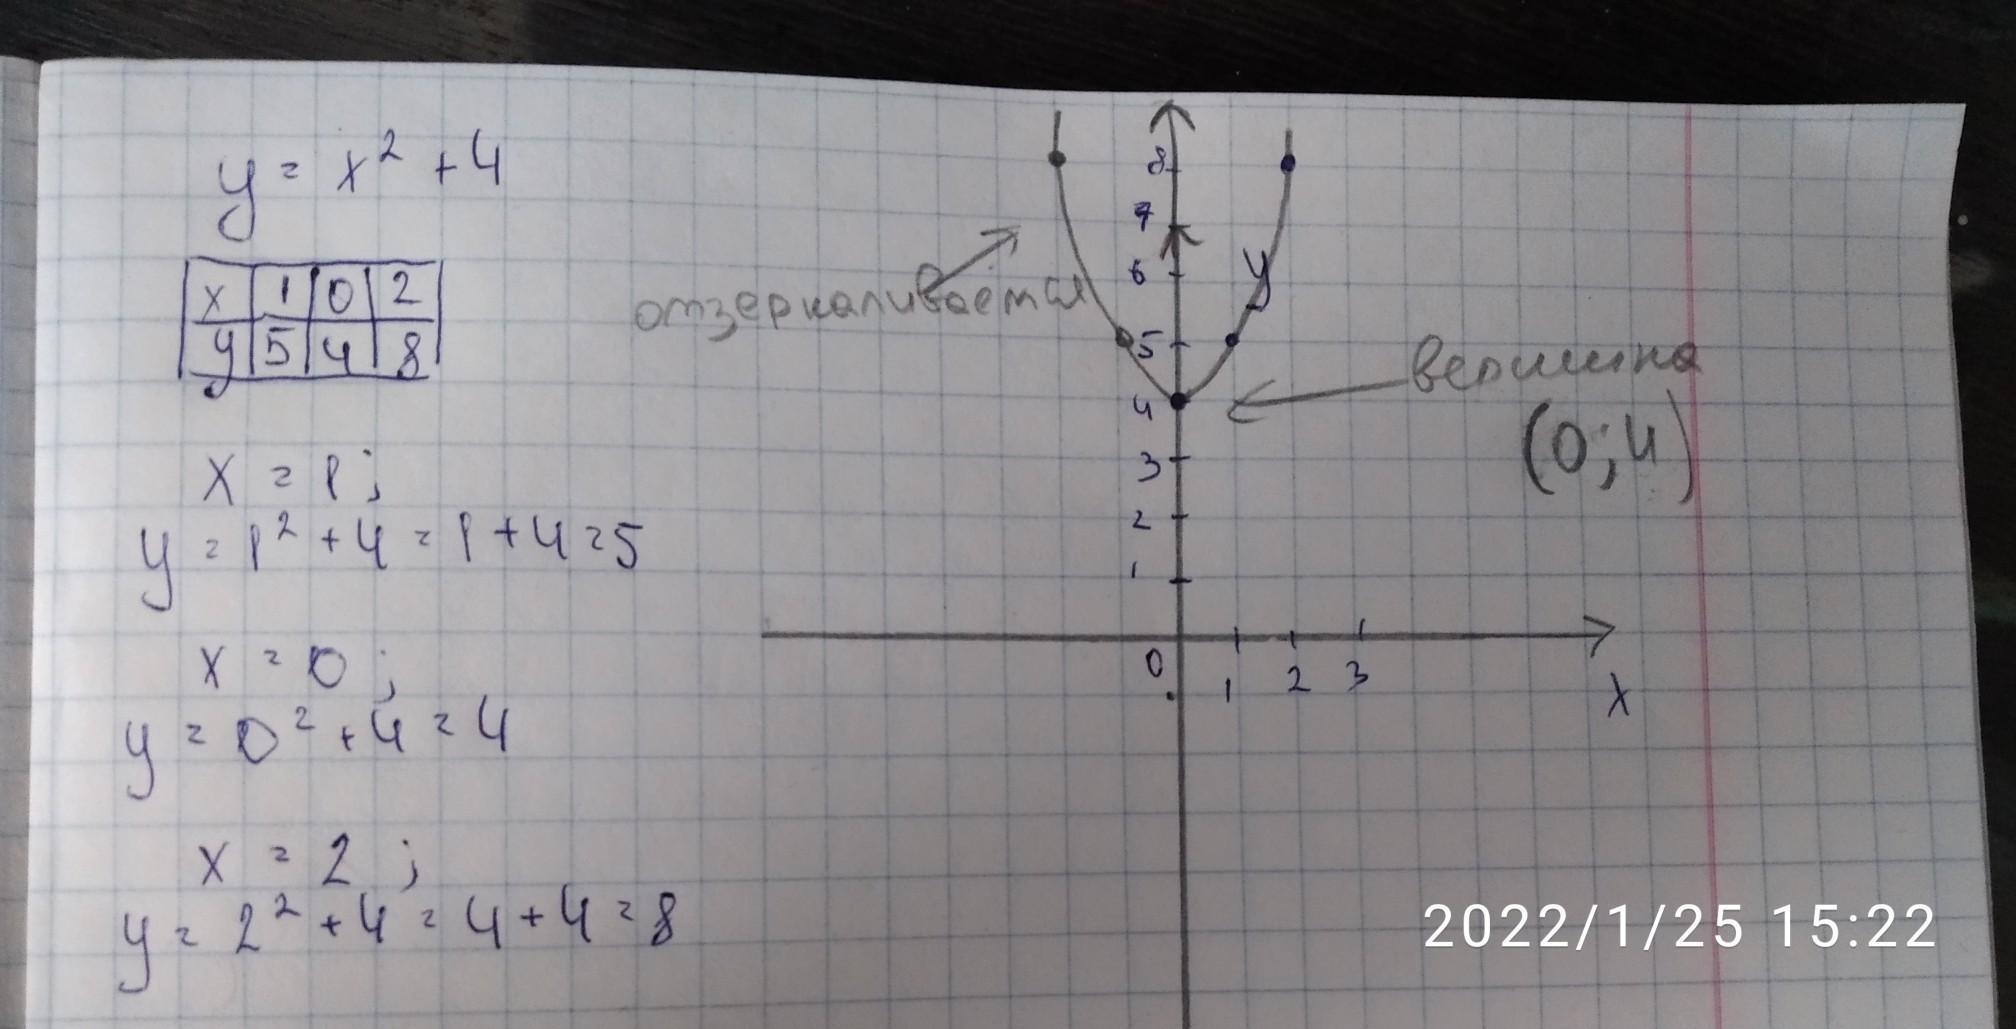 y = x² + 4
x 1 0 2
y 5 4 8
x = 1;
y = 1² + 4 = 1 + 4 = 5
x = 0;
y = 0² + 4 = 4
x = 2;
y = 2² + 4 = 4 + 4 = 8
8
7
6
y
отзеркаливается
5
вершина
4
(0;4)
3
2
1
0
1 2 3
x
2022/1/25 15:22